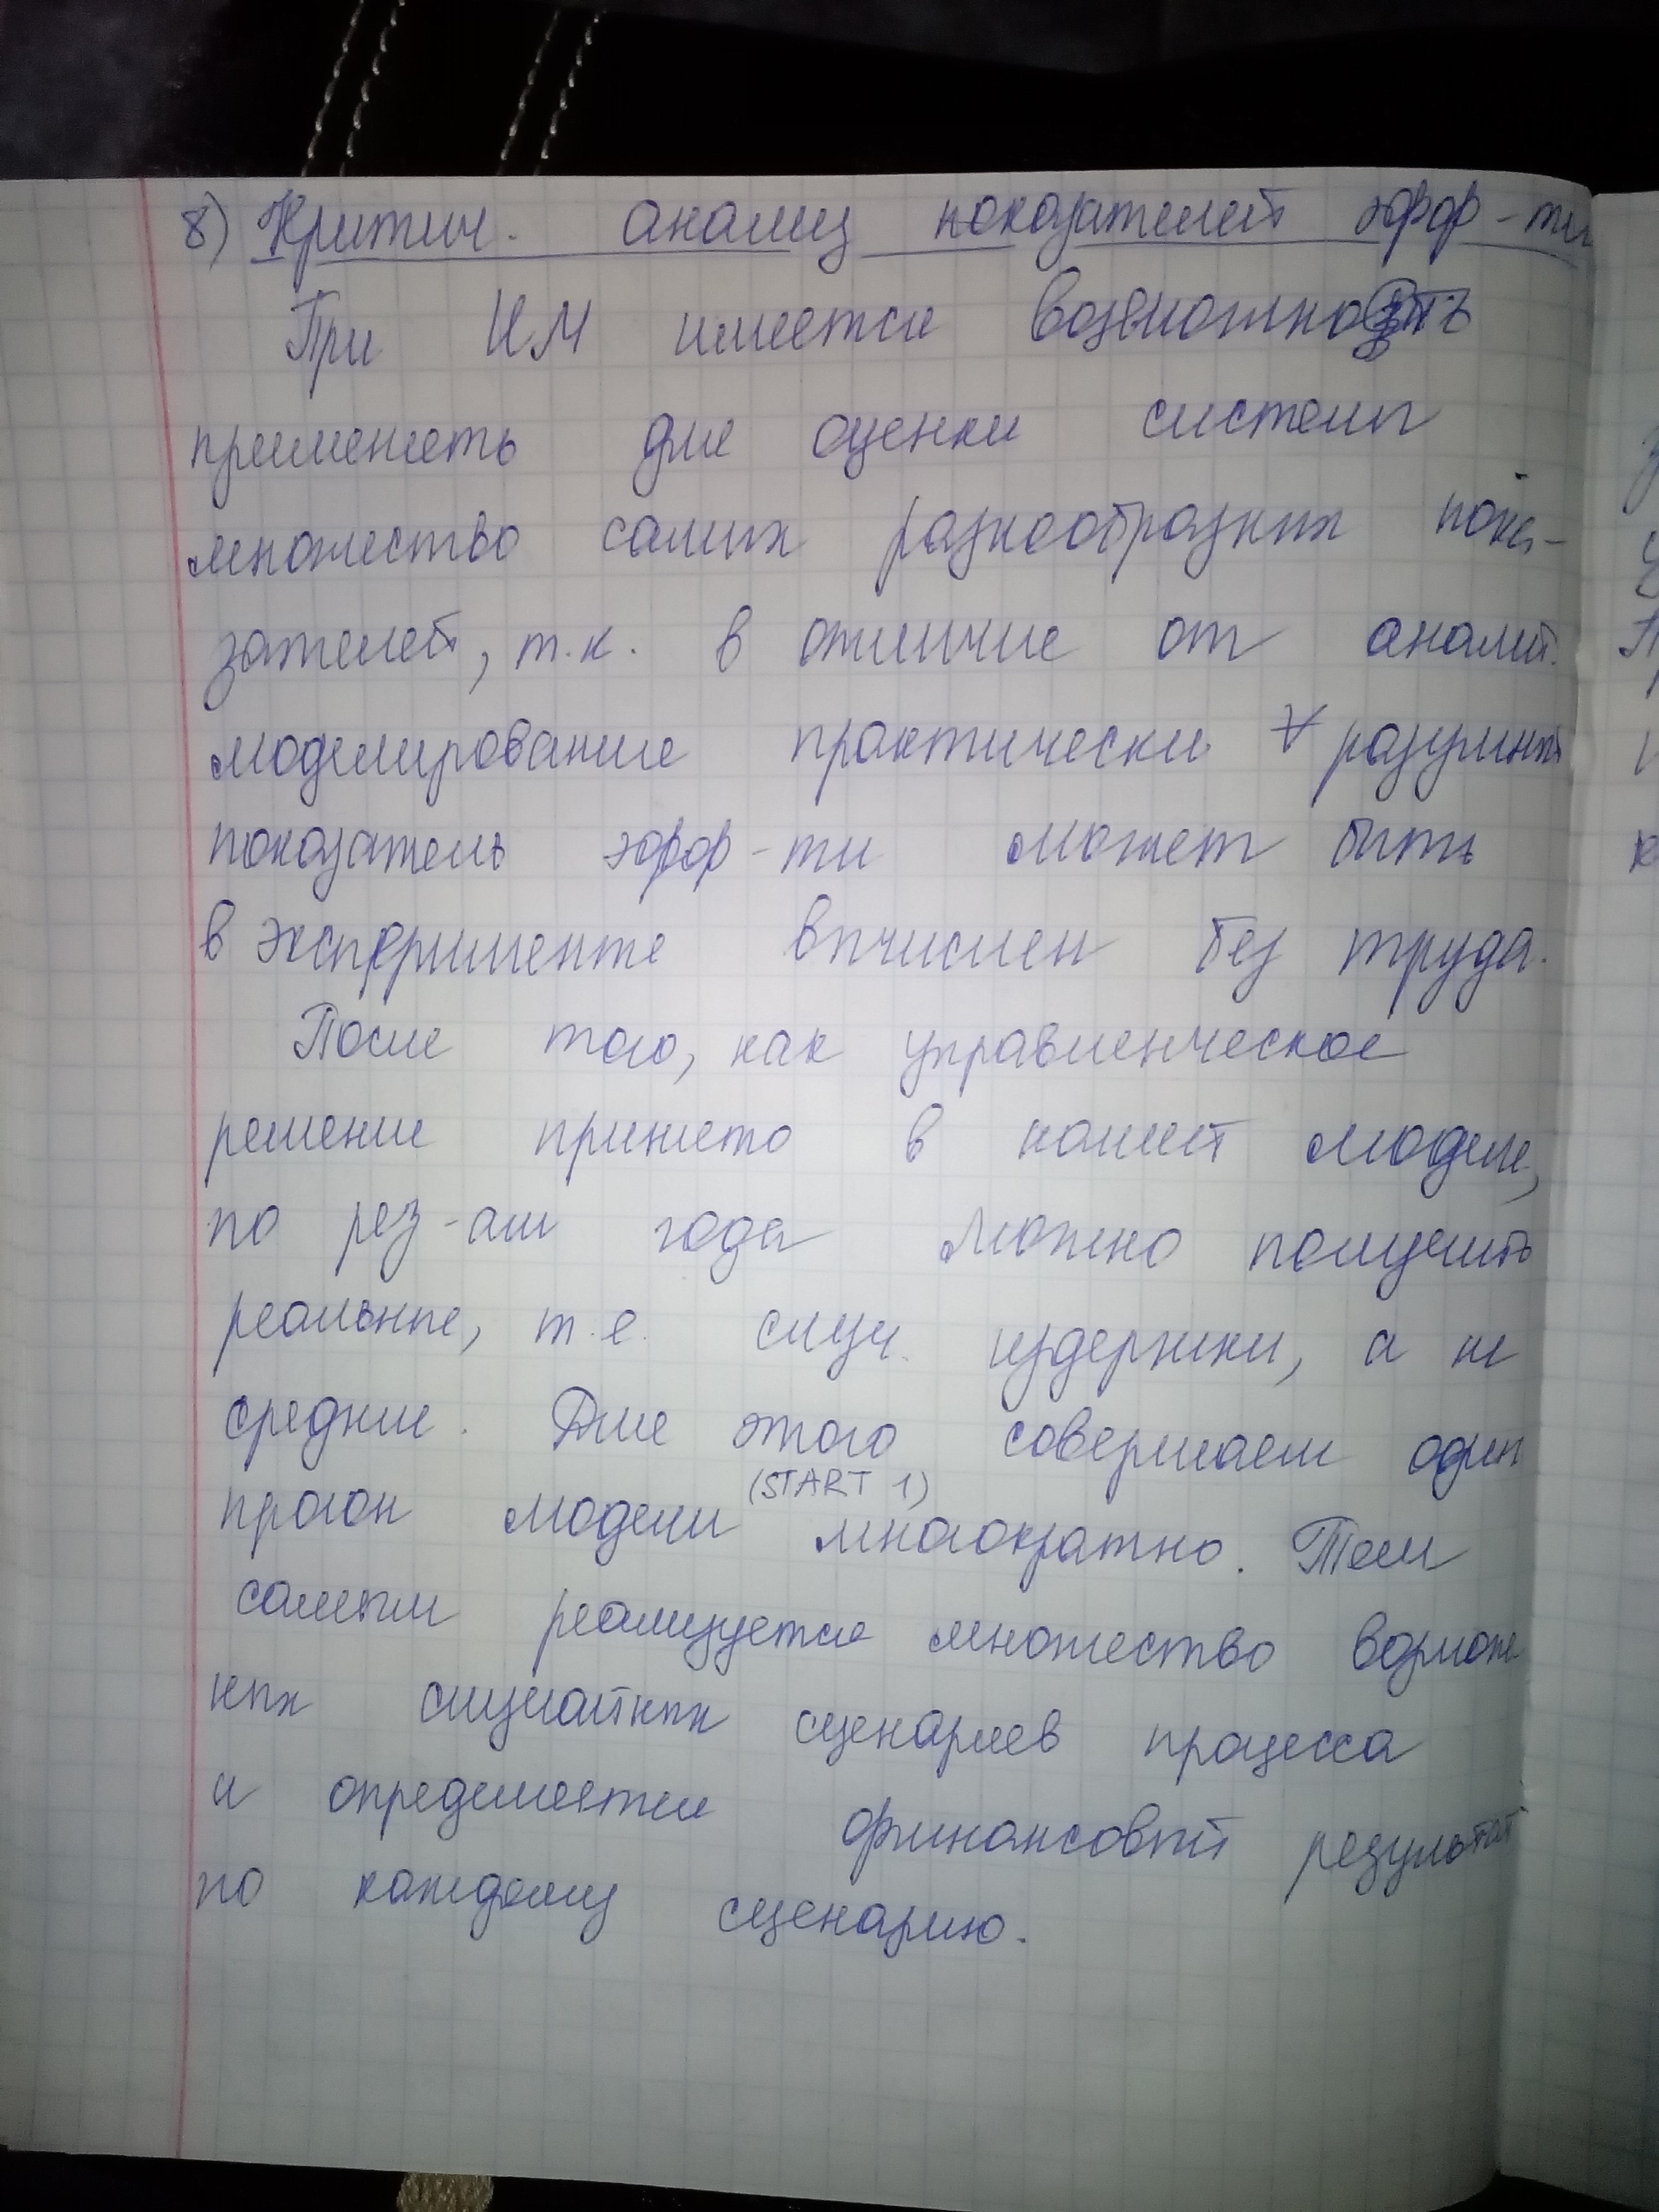 8) Критич. анализ показателей эфф-ти
При ИМ имеется возможность
применять для оценки системы
множество самых разнообразных пока-
зателей, т.к. в отличие от аналит.
моделирование практически ∀ разумный
показатель эфф-ти может быть
в эксперименте вычислен без труда.
После того, как управленческое
решение принято в нашей модели,
по рез-ам года можно получить
реальные, т.е. случ. издержки, а не
средние. Для этого совершаем один
(START 1)
прогон модели многократно. Тем
самым реализуется множество возмож
ных случайных сценариев процесса
и определяется финансовый результат
по каждому сценарию.